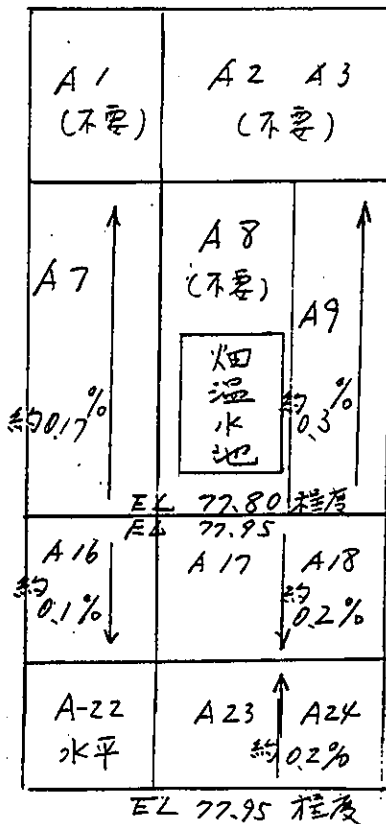 A1
(不要)
A2 A3
(不要)
A7
約0.17%
A8
(不要)
畑温水池
A9
約0.3%
EL 77.80 程度
EL 77.95
A16
約0.1%
A17
A18
約0.2%
A-22
水平
A23
A24
約0.2%
EL 77.95 程度